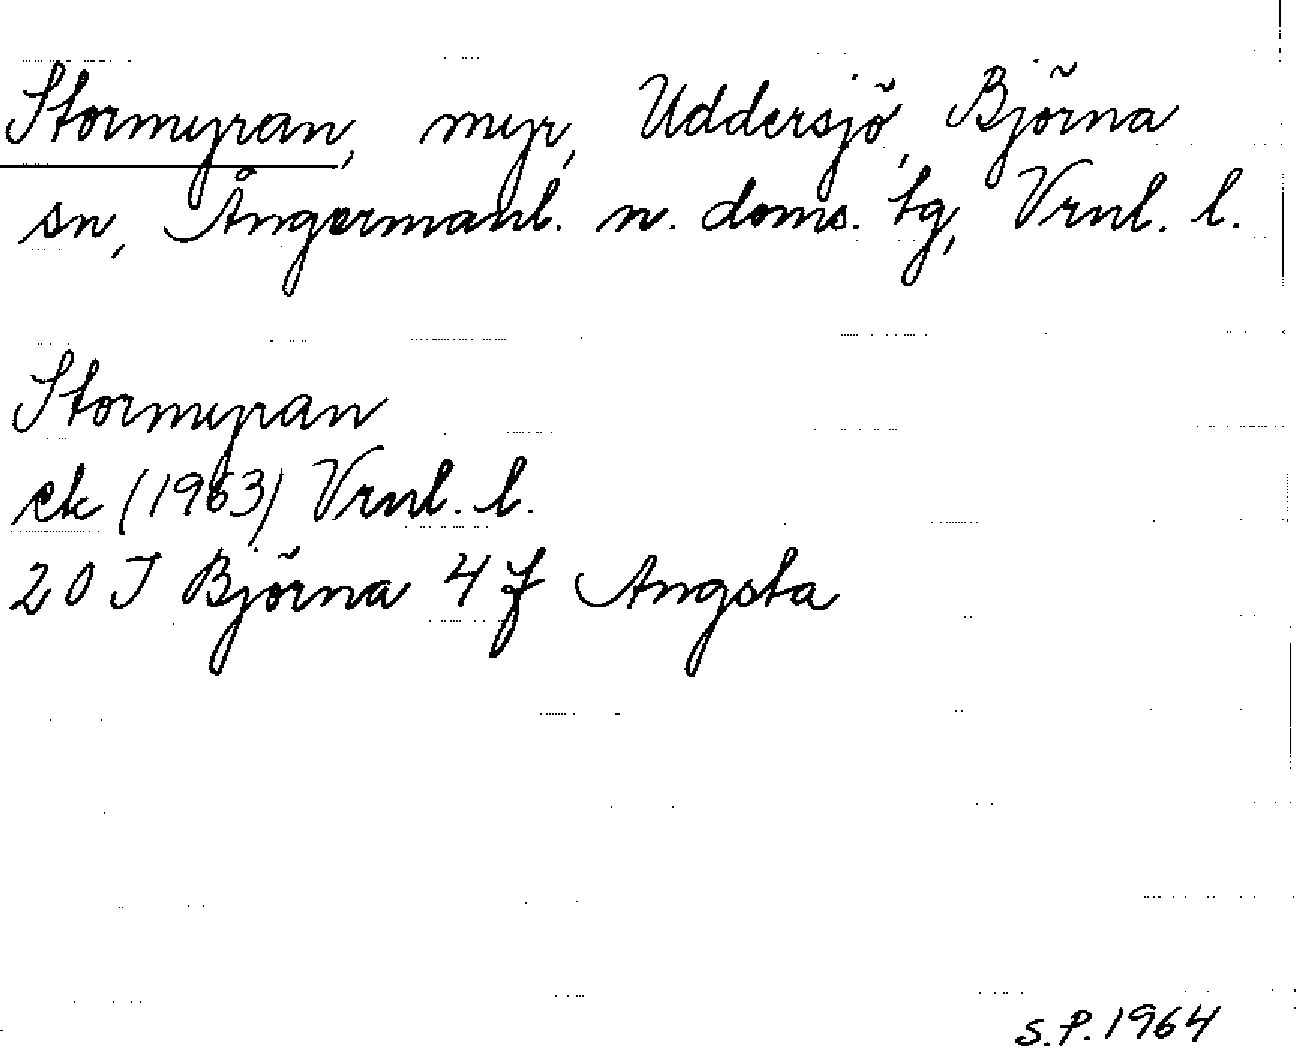 Stormyran, myr, Uddersjö, Björna
sn, Ångermanl. n. doms. tg, Vrnl. l.
Stormyran
ek (1963) Vrnl. l.
20 J Björna 4 f Angsta
S.P. 1964